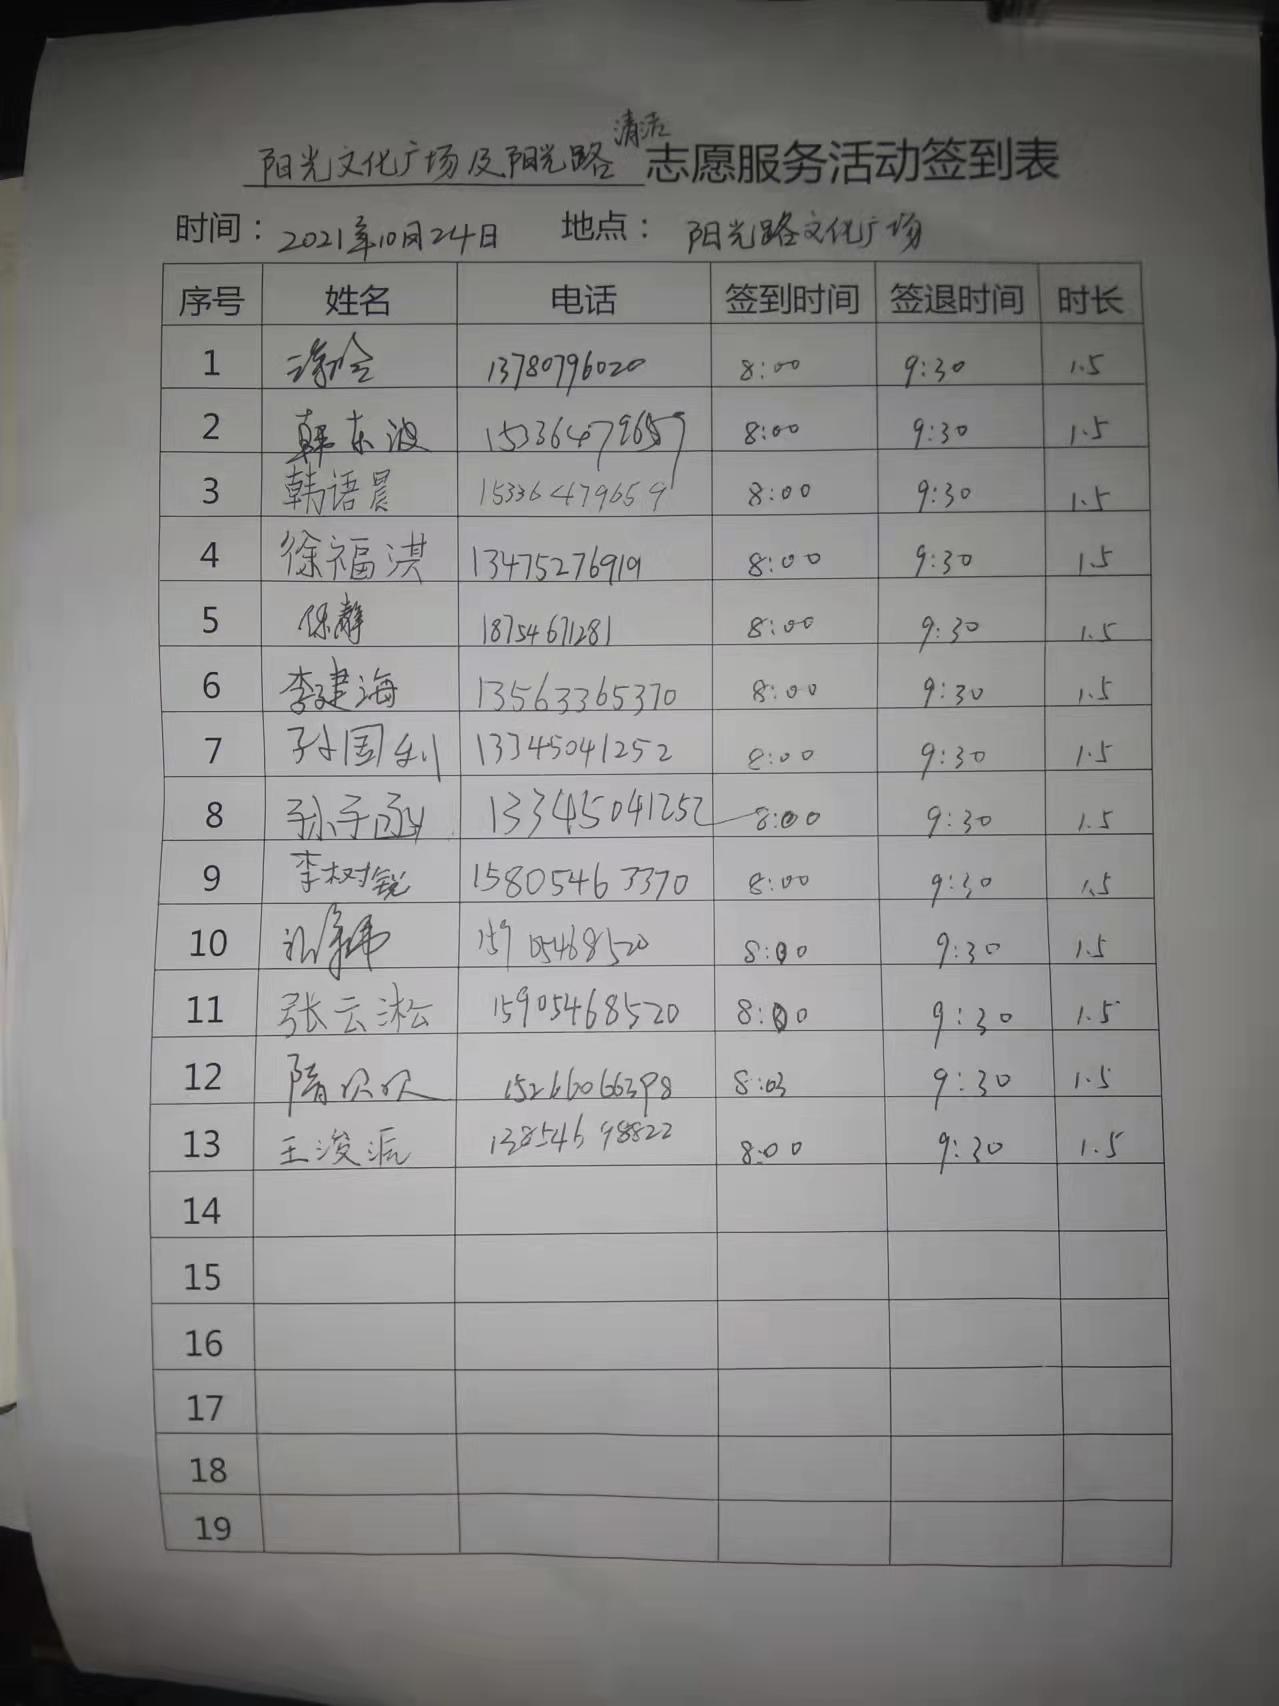 阳光文化广场及阳光路清洁志愿服务活动签到表
时间：2021年10月24日 地点：阳光路文化广场
序号 姓名 电话 签到时间 签退时间 时长
1 13780796020 8:00 9:30 1.5
2 韩东波 15336479659 8:00 9:30 1.5
3 韩语晨 15336479659 8:00 9:30 1.5
4 徐福洪 13475276919 8:00 9:30 1.5
5 保静 18754671281 8:00 9:30 1.5
6 李建海 13563365370 8:00 9:30 1.5
7 孙国利 13345041252 8:00 9:30 1.5
8 孙子函 13345041252 8:00 9:30 1.5
9 李树锐 15805463370 8:00 9:30 1.5
10 15905468520 8:00 9:30 1.5
11 张云淞 15905468520 8:00 9:30 1.5
12 隋欢欢 15266066398 8:03 9:30 1.5
13 王浚派 13854698822 8:00 9:30 1.5
14
15
16
17
18
19